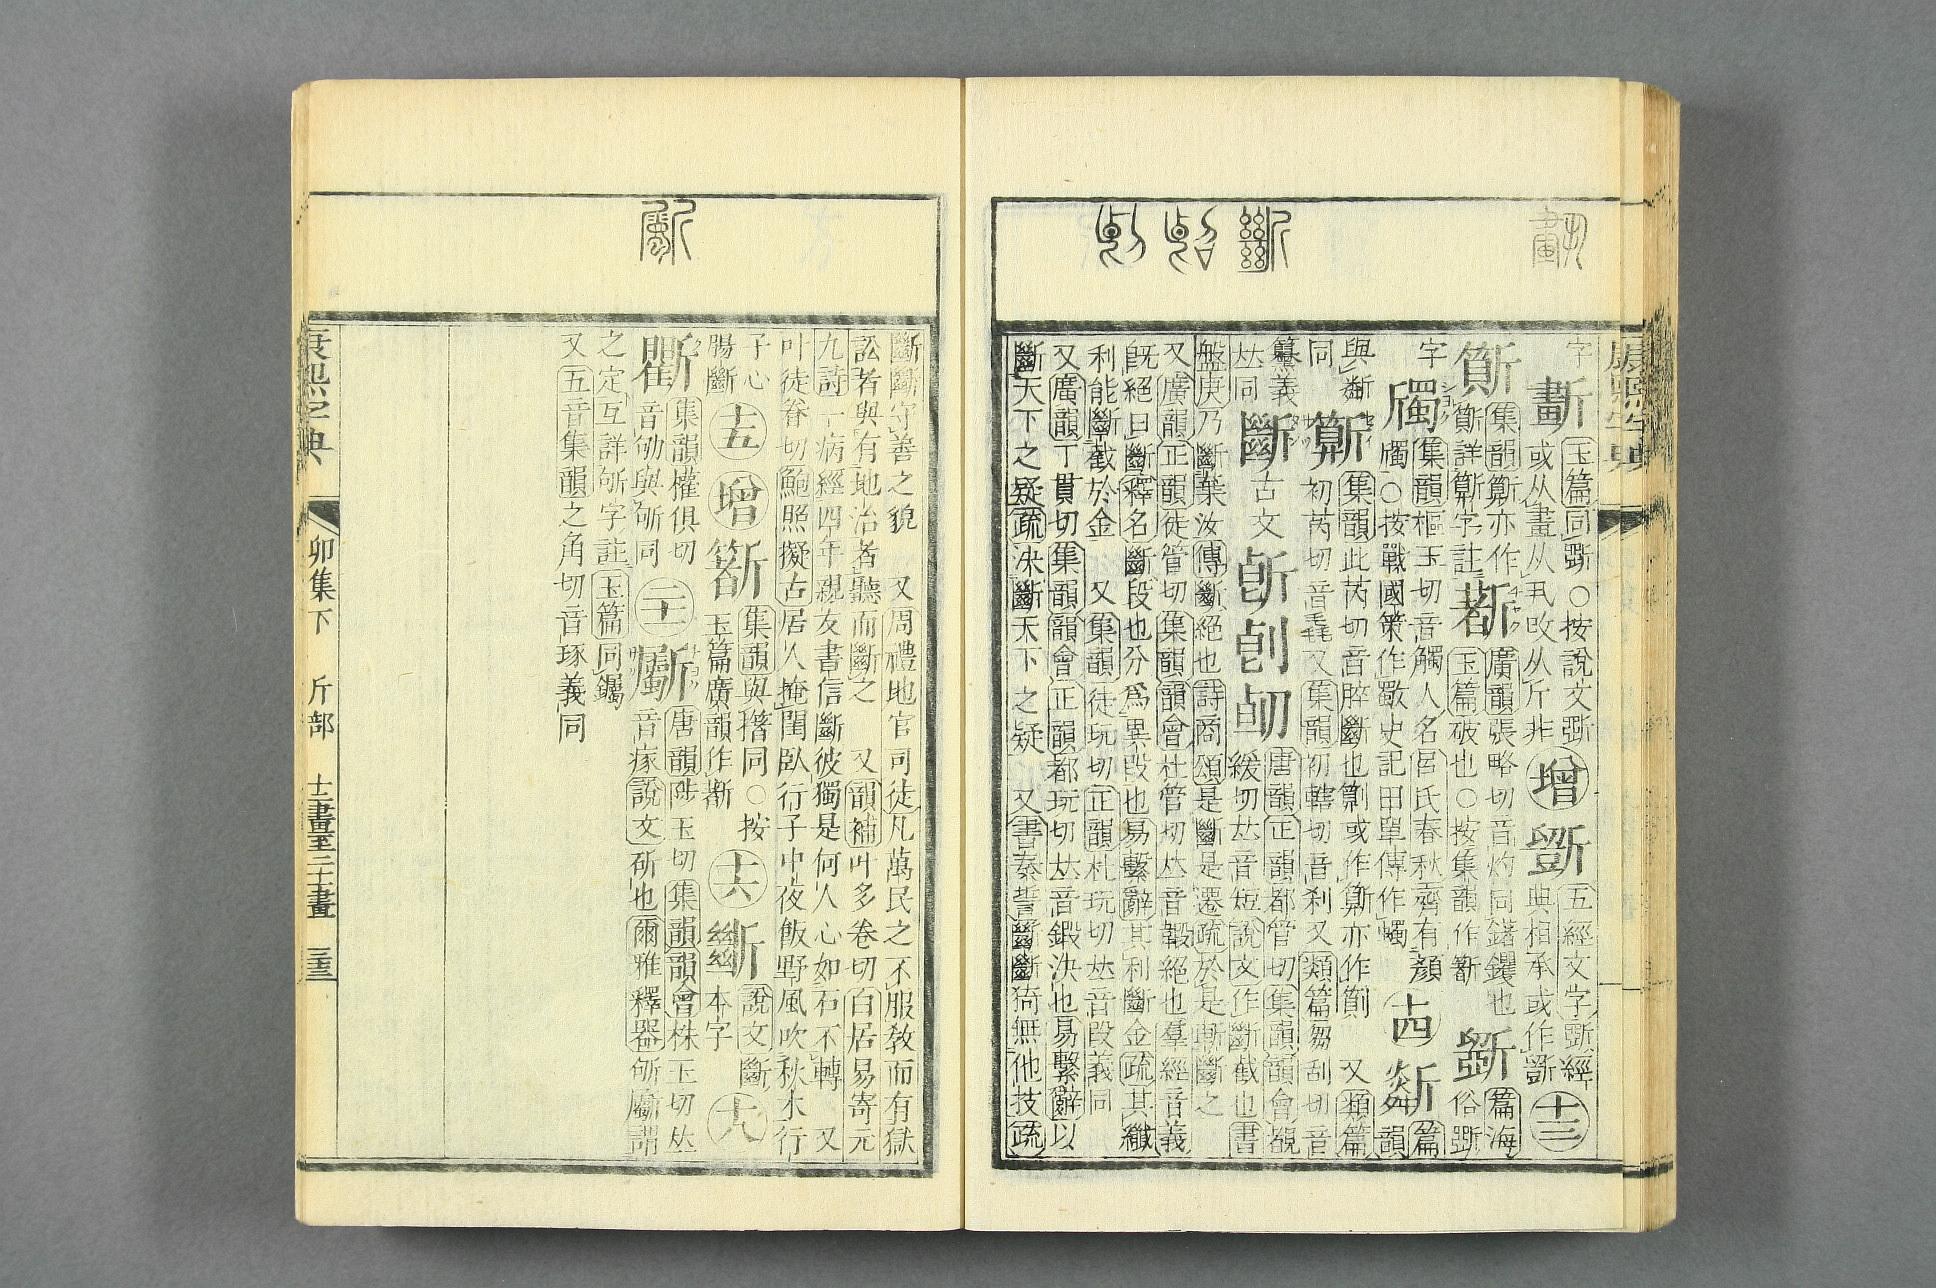 康熙字典
字
玉篇同斲○按說文斲
或从畫从丮攺从斤非
增
斵
五經文字斲經
典相承或作斵
十三
亦作
詳字註
廣韻張略切音灼同鐯钁也
玉篇破也○按集韻作
篇海
俗斲
字
集韻樞玉切音觸人名呂氏春秋齊有顏
斶○按戰國策作歜史記田單傳作蠋
十四
篇
韻
與斷
同
集韻此芮切音脺斷也或作亦作劕 又類篇
初芮切音毳又集韻初轄切音刹又類篇芻刮切音
纂義
𠀤同
斷
古文
唐韻正韻都管切集韻韻會覩
緩切𠀤音短說文作斷截也書
盤庚乃斷棄汝傳斷絕也詩商頌是斷是遷疏於是斬斷之
又廣韻正韻徒管切集韻韻會杜管切𠀤音䤪絕也羣經音義
旣絕曰斷釋名斷段也分爲異段也易繫辭其利斷金疏其纖
利能斷截於金 又集韻徒玩切正韻杜玩切𠀤音段義同
又廣韻丁貫切集韻韻會正韻都玩切𠀤音鍛決也易繫辭以
斷天下之疑疏決斷天下之疑 又書秦誓斷斷猗無他技疏
斷斷守善之貌 又周禮地官司徒凡萬民之不服教而有獄
訟者與有地治者聽而斷之 又韻補叶多卷切白居易寄元
九詩一病經四年親友書信斷彼獨是何人心如石不轉 又
叶徒眷切鮑照擬古居人掩閨臥行子中夜飯野風吹秋木行
子心
腸斷
十五
增
集韻與撍同○按
玉篇廣韻作
十六
說文斷
本字
十九
集韻權俱切
音劬與斪同
二十一
斸
唐韻陟玉切集韻韻會株玉切𠀤
音瘃說文斫也爾雅釋器斪斸謂
之定互詳斪字註玉篇同钃
又五音集韻之角切音琢義同
康熙字典
卯集下 斤部 十二畫至二十一畫